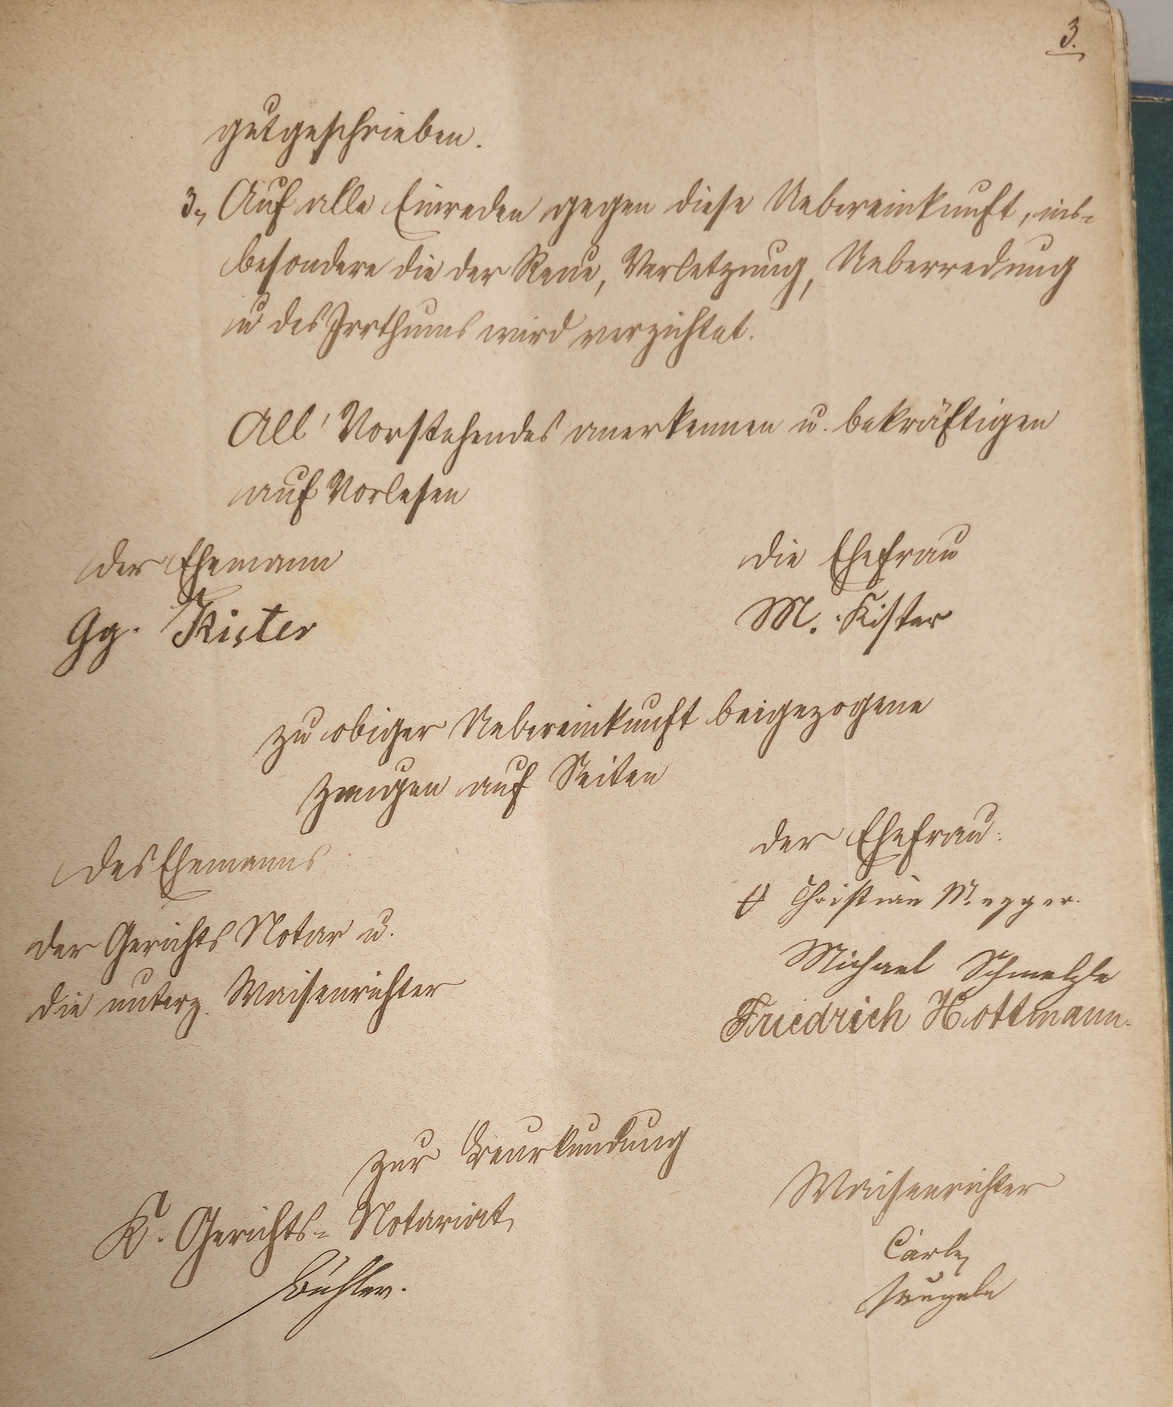 3.
gutgeschrieben.
3., Auf alle Einreden gegen diese Uebereinkunft, ins-
besondere die der Reue, Verletzung, Ueberredung
u des Irrthums wird verzichtet.
All' Vorstehendes anerkennen u. bekräftigen
auf Vorlesen
der Ehemann
Gg. Kister
die Ehefrau
M. Kister
zu obiger Uebereinkunft beigezogene
Zeugen auf Seiten
des Ehemanns
der Gerichts Notar u.
die unterz. Waisenrichter
der Ehefrau:
Christian Mezger.
Michael Schmelzle
Friedrich Hottmann.
Zur Beurkundung
K. Gerichts-Notariat
Bühler.
Waisenrichter
Carle